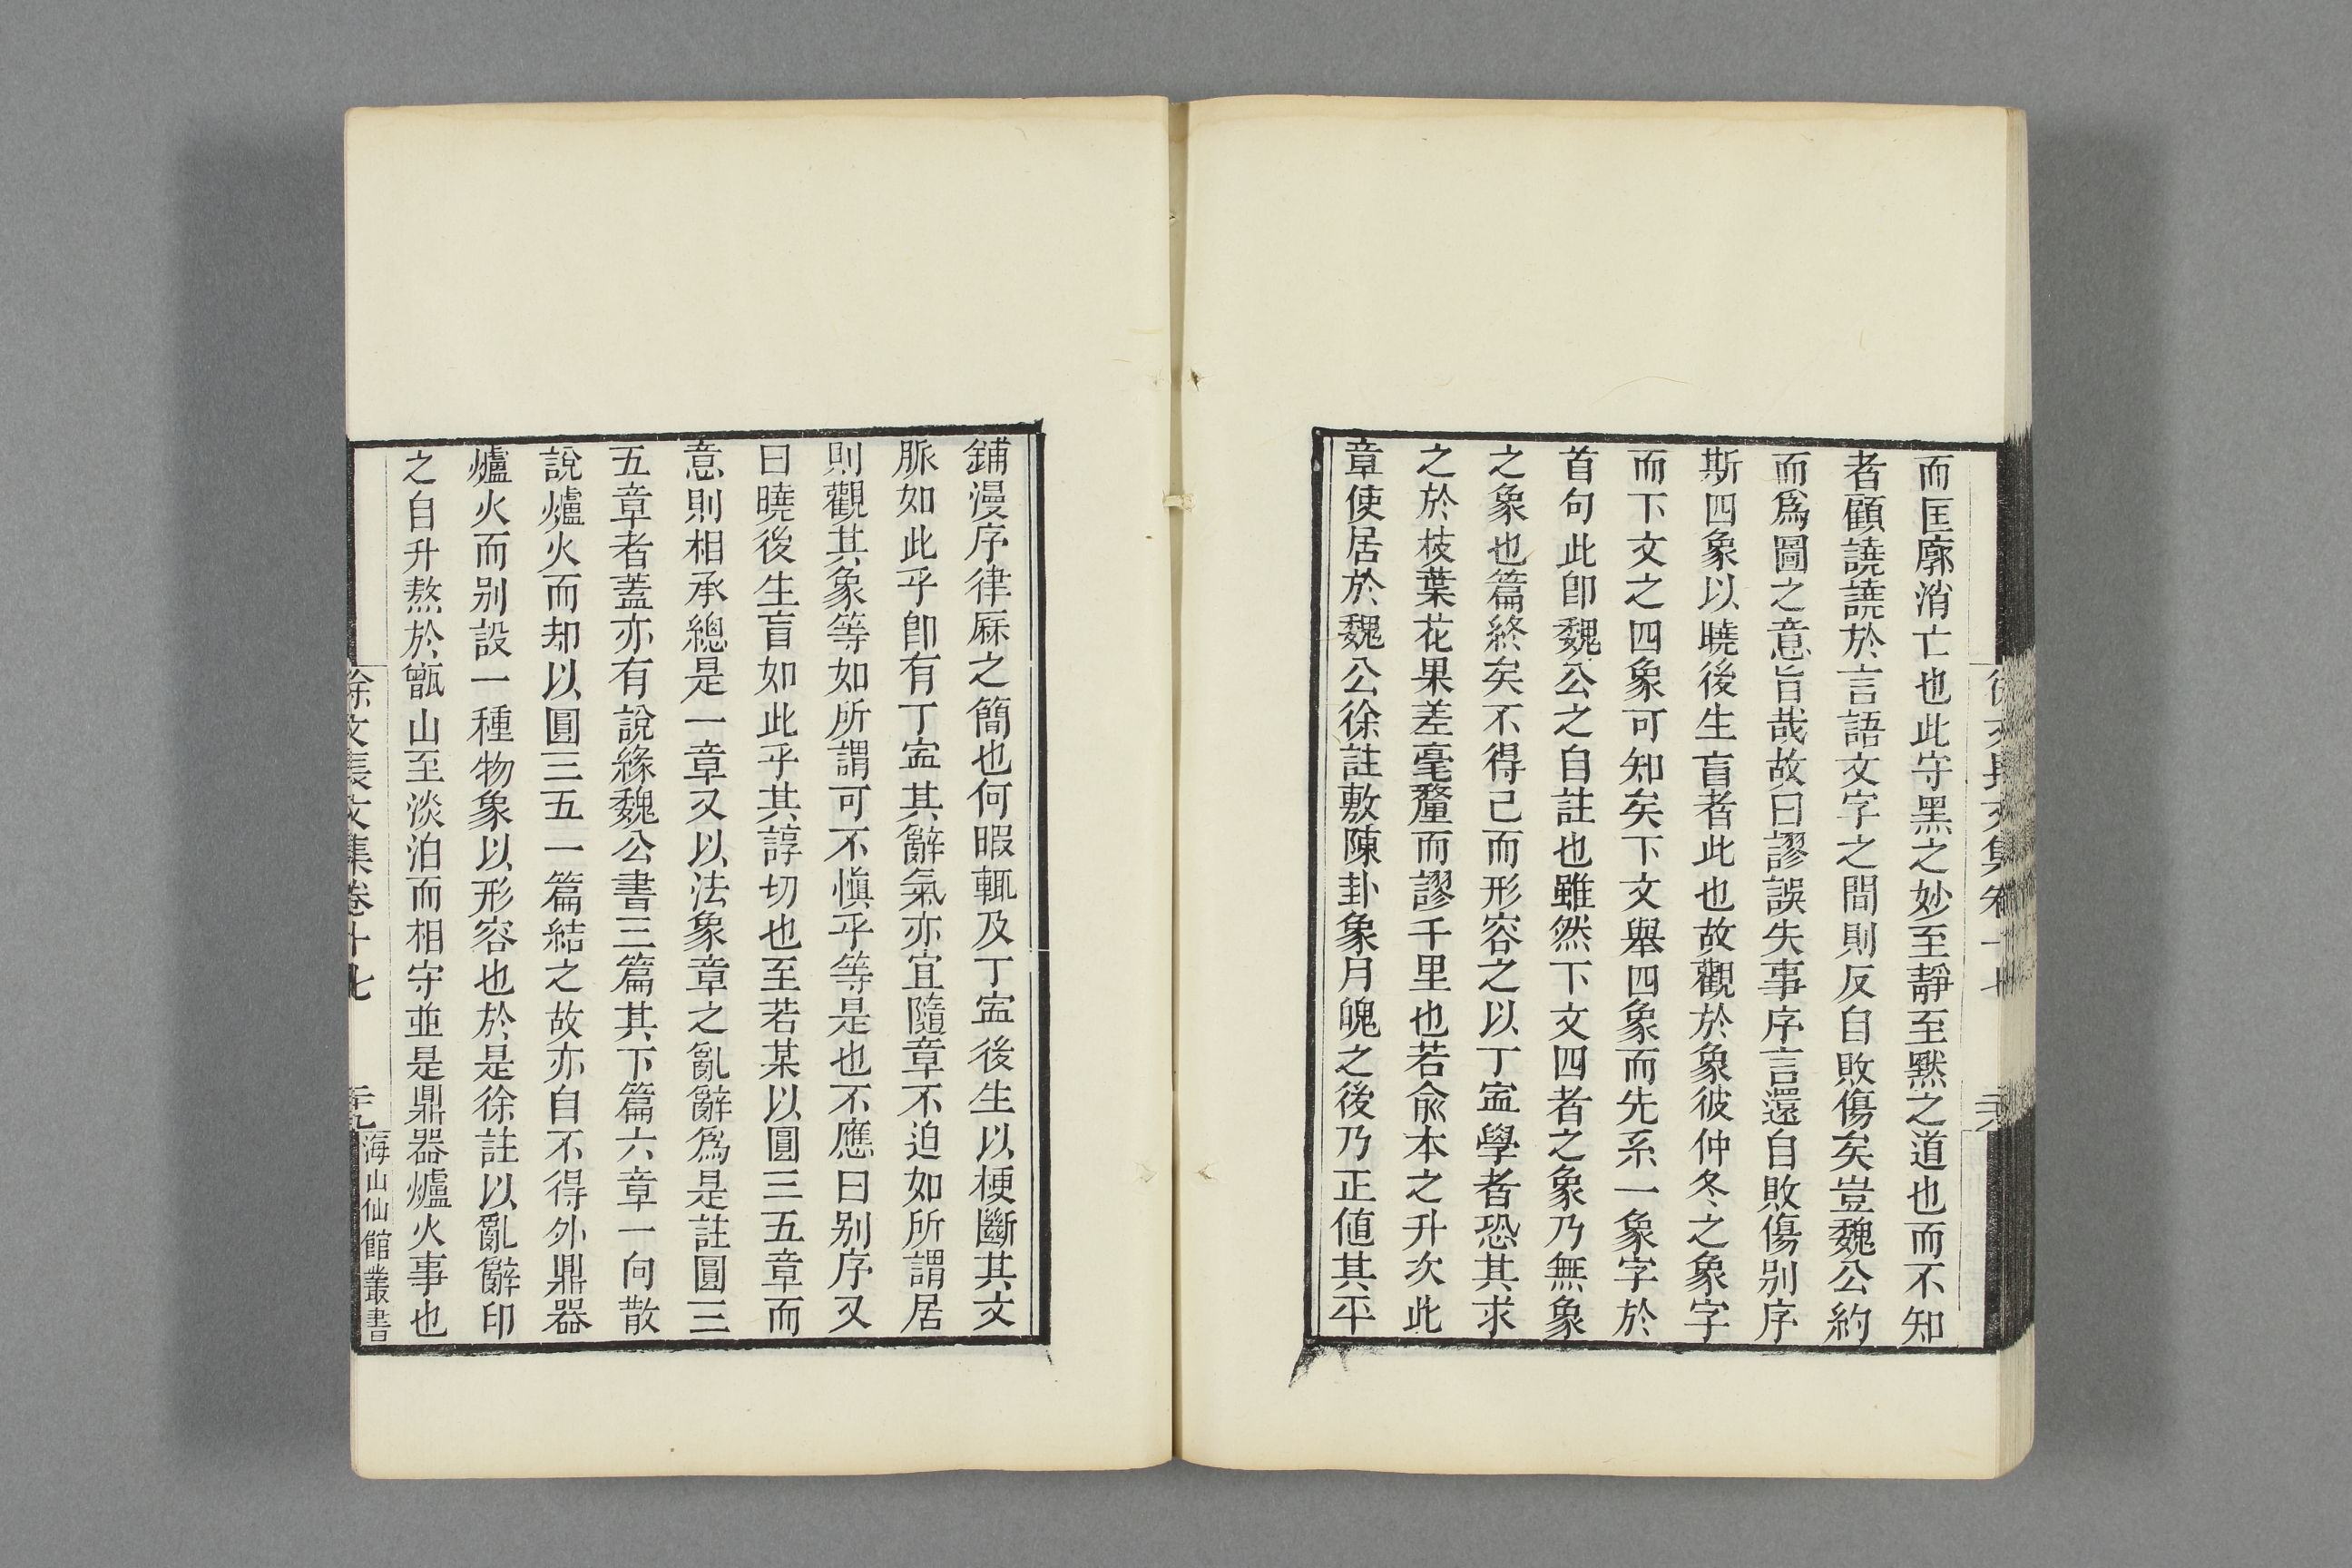 而匡廓消亡也此守黑之妙至靜至默之道也而不知
者顧譊譊於言語文字之間則反自敗傷矣豈魏公約
而爲圖之意旨哉故曰謬誤失事序言還自敗傷别序
斯四象以曉後生盲者此也故觀於象彼仲冬之象字
而下文之四象可知矣下文舉四象而先系一象字於
首句此卽魏公之自註也雖然下文四者之象乃無象
之象也篇終矣不得已而形容之以丁寍學者恐其求
之於枝葉花果差毫釐而謬千里也若兪本之升次此
章使居於魏公徐註敷陳卦象月魄之後乃正値其平
鋪漫序律厤之簡也何暇輒及丁寍後生以梗斷其文
脈如此乎卽有丁寍其辭氣亦宜隨章不迫如所謂居
則觀其象等如所謂可不愼乎等是也不應曰别序又
曰曉後生盲如此乎其諄切也至若某以圓三五章而
意則相承總是一章又以法象章之亂辭爲是註圓三
五章者蓋亦有說緣魏公書三篇其下篇六章一向散
說爐火而却以圓三五一篇結之故亦自不得外鼎器
爐火而别設一種物象以形容也於是徐註以亂辭印
之自升熬於甑山至淡泊而相守並是鼎器爐火事也
徐文長文集卷十七
海山仙館叢書